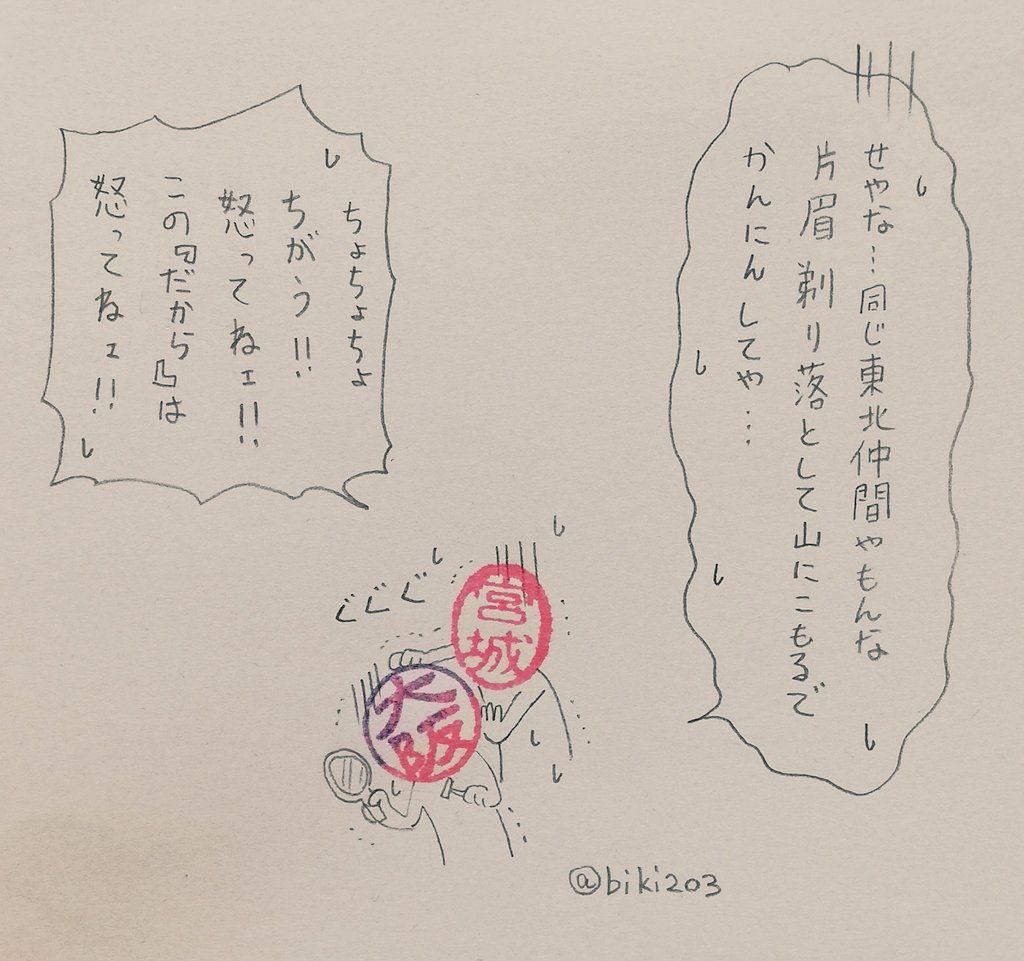 せやな…同じ東北仲間やもんな
片眉剃り落として山にこもるで
かんにんしてや…
ちょちょちょちょ
ちがう!!
怒ってねェ!!
この『だから』は
怒ってねェ!!
ぐぐぐ
宮城
大阪
@biki203